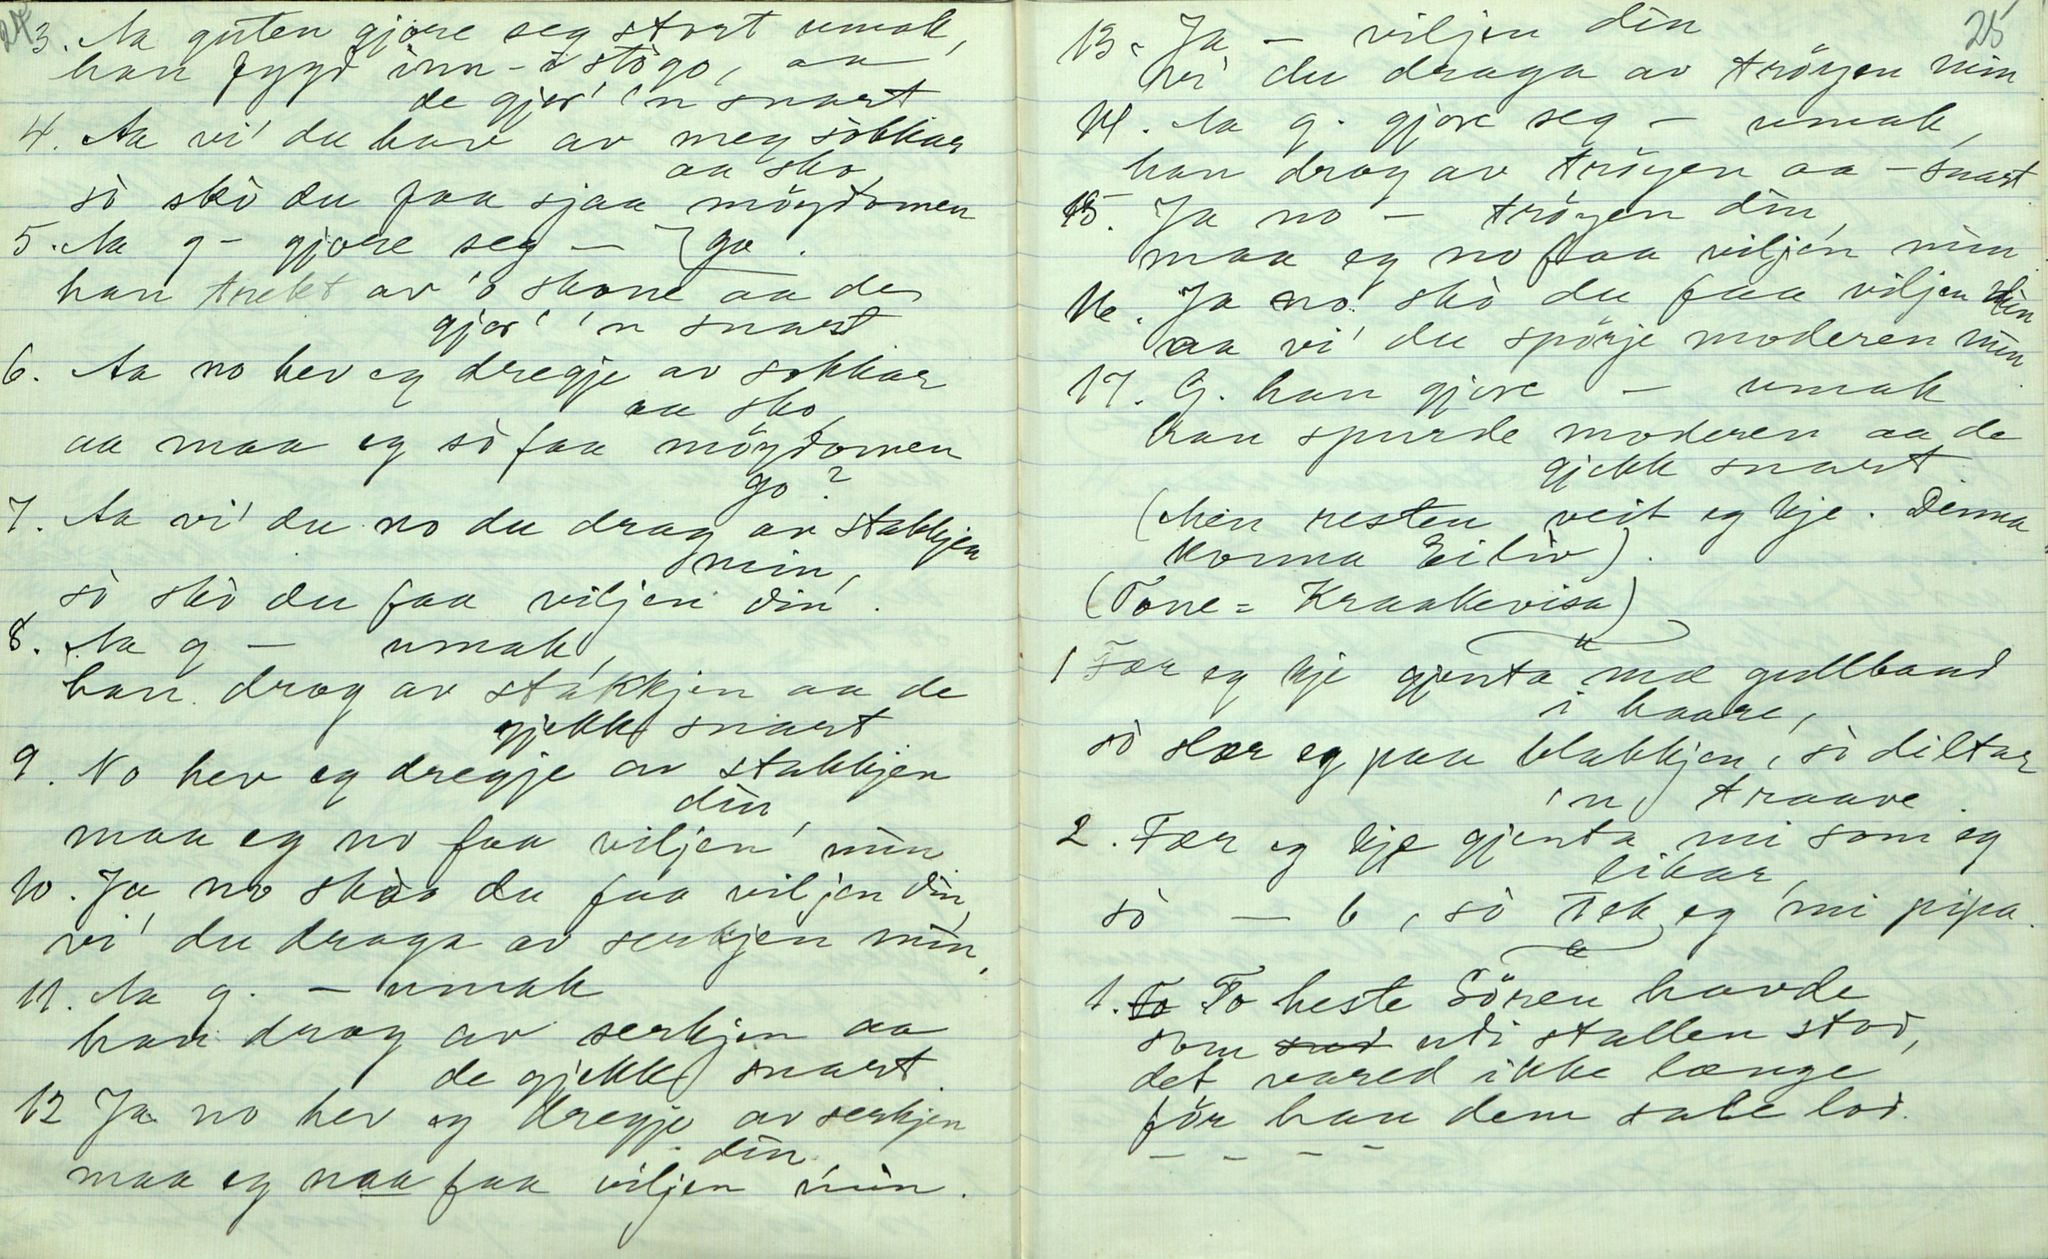 24
3. Aa guten gjore seg stort umak,
han fygd inn-i stògo, aa
de gjor' 'n snart
4. Aa vi' du have av meg sòkkar
aa sko,
sò skò du faa sjaa möydomen
5. Aa g - gjore seg — go.
han trekt av 'o skone aa de
gjor' 'n snart
6. Aa no hev eg dregje av sokkar
aa sko,
aa maa eg sò faa möydomen
go?
7. Aa vi' du no du drag av stakkjen
min,
sò skò du faa viljen din.
8. Aa g — umak,
han drog av stakkjen aa de
gjekk snart
9. No hev eg dregje av stakkjen
din
maa eg no faa viljen min
10. Ja no skò du faa viljen din,
vi' du draga av serkjen min,
11. Aa g. — umak
han drog av serkjen aa
de gjekk snart.
12 Ja no hev eg dregje av serkjen
din
maa eg naa faa viljen min.
25
13. Ja — viljen din
vi' du draga av tröyen min
14. Aa g. gjore seg — umak,
han drog av tröyen aa — snart
15. Ja no — tröyen din,
maa eg no faa viljen min
16. Ja no skò du faa viljen din
aa vi' du spörje moderen min.
17. G. han gjore — umak
han spurde moderen aa de
gjekk snart
(Men resten veit eg kje. Denna
konna Eiliv).
(Tone = Kraakevisa)
1 Fær eg kje gjenta mæ gullband
i haare,
sò slær eg paa blakkjen, sò diltar
'n traave.
2. Fær eg kje gjenta mi som eg
likar,
sò — b, sò tek eg mi pipa.
1. To To heste Sören havde
som uti stallen stod,
det vared ikke længe
för han dem sale lod.
— — — —